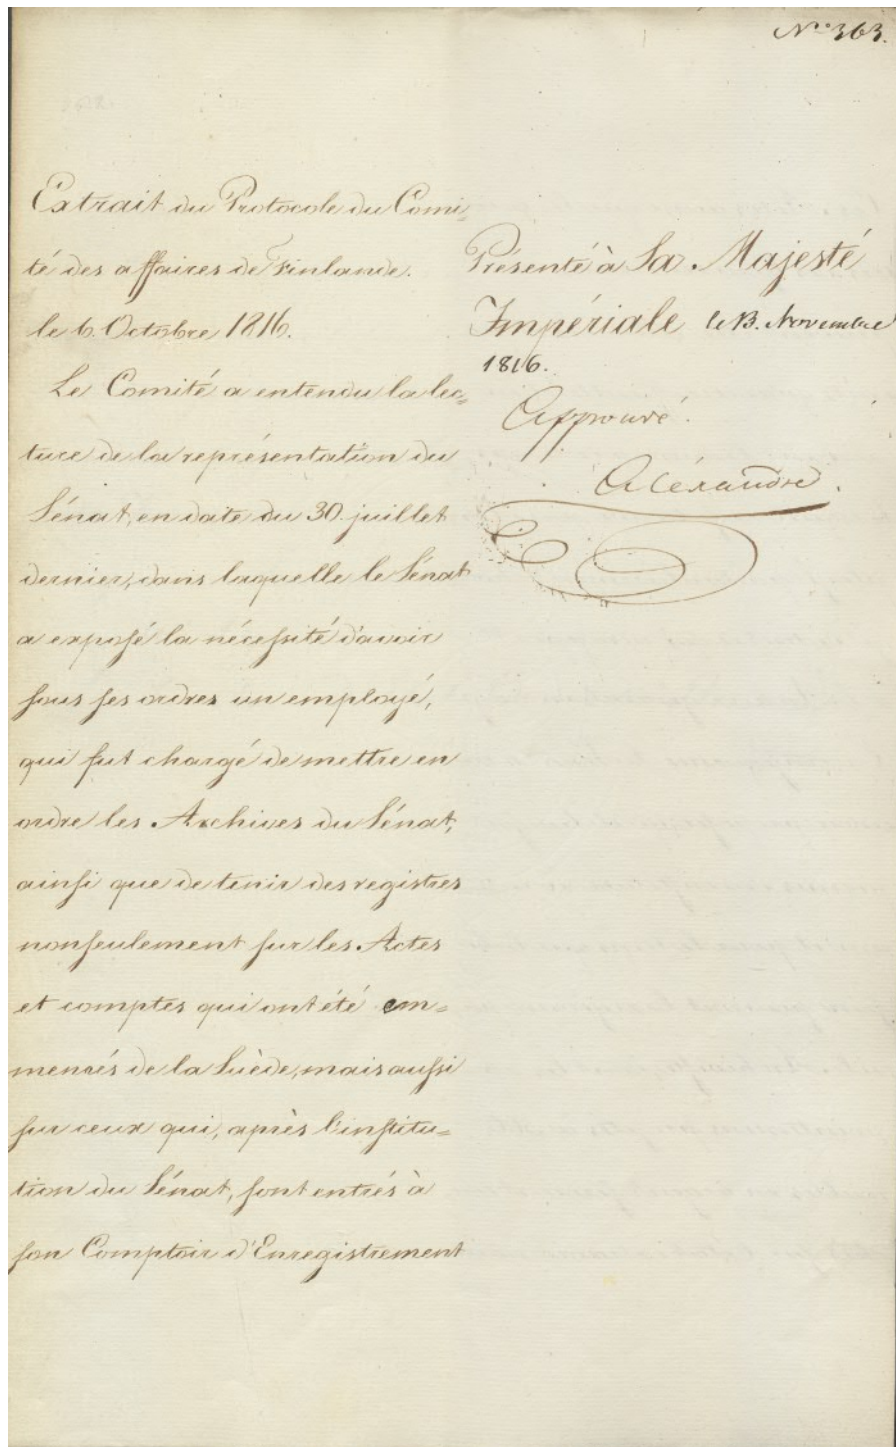 N.º 363.
Extrait du Protocole du Comi-
té des affaires de Finlande.
le 6. Octobre 1816.
Le Comité a entendu la lec-
ture de la représentation du
Sénat, en date du 30. juillet
dernier, dans laquelle le Sénat
a exposé la nécessité d'avoir
sous ses ordres un employé,
qui fut chargé de mettre en
ordre les Archives du Sénat,
ainsi que de tenir des registres
nonseulement sur les Actes
et comptes qui ont été em-
menés de la Suède, mais aussi
sur ceux qui, après l'institu-
tion du Sénat, sont entrés à
son Comptoir d'Enregistrement
Présenté à Sa Majesté
Impériale le 13. Novembre
1816.
Approuvé.
Aléxandre.